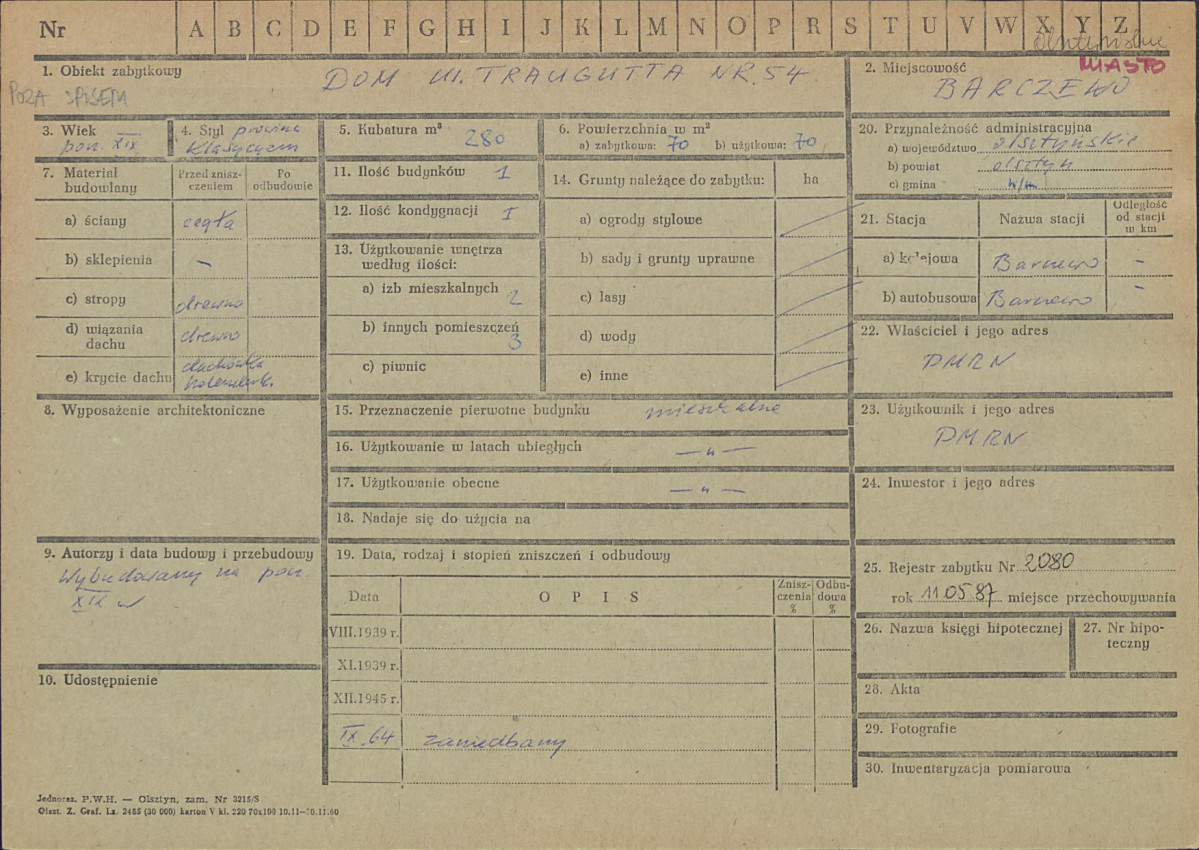 Nr A B C D E F G H I J K L M N O P R S T U V W X Y Z
MIASTO
1. Obiekt zabytkowy
DOM Ul. TRAUGUTTA NR. 54
POZA SPISEM
2. Miejscowość
BARCZEWO
3. Wiek
poł. XIX
4. Styl prowinc
klasycyzm
5. Kubatura m³
280
6. Powierzchnia w m²
a) zabytkowa: 70 b) użytkowa: 70
20. Przynależność administracyjna
a) województwo olsztyńskie
b) powiat olsztyn
c) gmina
7. Materiał budowlany
Przed znisz-
czeniem
Po
odbudowie
a) ściany cegła
b) sklepienia —
c) stropy drewno
d) wiązania
dachu drewno
e) krycie dachu dachówka
holenderk.
11. Ilość budynków 1
12. Ilość kondygnacji I
13. Użytkowanie wnętrza
według ilości:
a) izb mieszkalnych 2
b) innych pomieszczeń
3
c) piwnic
14. Grunty należące do zabytku: ha
a) ogrody stylowe
b) sady i grunty uprawne
c) lasy
d) wody
e) inne
21. Stacja Nazwa stacji
Odległość
od stacji
w km
a) kolejowa Barczewo –
b) autobusowa Barczewo –
22. Właściciel i jego adres
PMRN
8. Wyposażenie architektoniczne
15. Przeznaczenie pierwotne budynku mieszkalne
16. Użytkowanie w latach ubiegłych — „ —
17. Użytkowanie obecne — „ —
18. Nadaje się do użycia na
23. Użytkownik i jego adres
PMRN
24. Inwestor i jego adres
9. Autorzy i data budowy i przebudowy
Wybudowany na poł.
XIX w
10. Udostępnienie
19. Data, rodzaj i stopień zniszczeń i odbudowy
Data O P I S
Znisz-
czenia
%
Odbu-
dowa
%
VIII.1939 r.
XI.1939 r.
XII.1945 r.
IX. 64 zaniedbany
25. Rejestr zabytku Nr 2080
rok 11 05 87 miejsce przechowywania
26. Nazwa księgi hipotecznej
27. Nr hipo-
teczny
28. Akta
29. Fotografie
30. Inwentaryzacja pomiarowa
Jednoraz. P.W.H. — Olsztyn, zam. Nr 3215/S
Olszt. Z. Graf. Lz. 2465 (30 000) karton V kl. 220 70x100 10.11—30.11.60